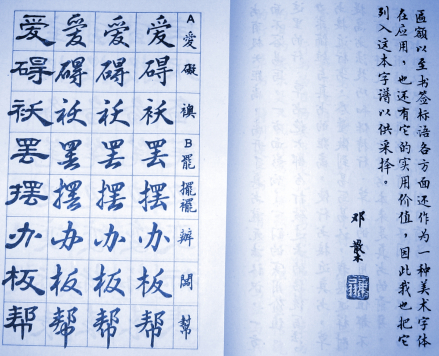 匾额以至书签标语各方面还作为一种美术字体
在应用，也还有它的实用价值，因此我也把它
列入这本字谱以供采择。
邓散木
A 愛 爱 爱 爱 爱
礙 碍 碍 碍 碍
襖 袄 袄 袄 袄
B 罷 罢 罢 罢 罢
擺襬 摆 摆 摆 摆
辦 办 办 办 办
闆 板 板 板 板
幫 帮 帮 帮 帮